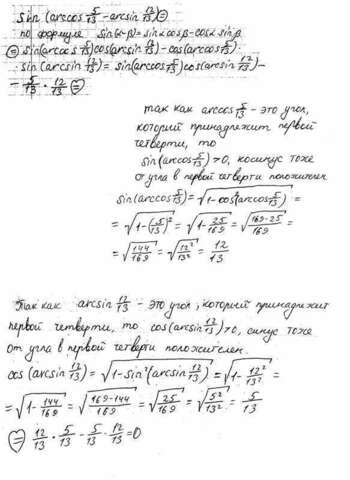 sin(arccos 5/13 - arcsin 12/13) =
по формуле sin(α-β) = sinα cosβ - cosα sinβ
= sin(arccos 5/13) cos(arcsin 12/13) - cos(arccos 5/13) ·
· sin(arcsin 12/13) = sin(arccos 5/13) cos(arcsin 12/13) -
- 5/13 · 12/13 =
так как arccos 5/13 - это угол,
который принадлежит первой
четверти, то
sin(arccos 5/13) > 0, косинус тоже
от угла в первой четверти положителен
sin(arccos 5/13) = √(1-cos²(arccos 5/13)) =
= √(1-(5/13)²) = √(1-25/169) = √((169-25)/169) =
= √(144/169) = √(12²/13²) = 12/13
Так как arcsin 12/13 - это угол, который принадлежит
первой четверти, то cos(arcsin 12/13) > 0, синус тоже
от угла в первой четверти положителен.
cos(arcsin 12/13) = √(1-sin²(arcsin 12/13)) = √(1-12²/13²) =
= √(1-144/169) = √((169-144)/169) = √(25/169) = √(5²/13²) = 5/13
= 12/13 · 5/13 - 5/13 · 12/13 = 0